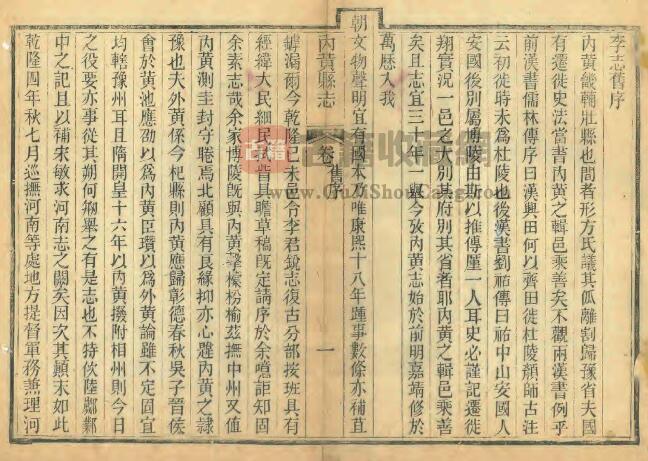 李志舊序
內黃畿輔壯縣也間者形方氏議其孤離割歸豫省夫國
有遷徙史法當書內黃之輯邑乘善矣不觀兩漢書例乎
前漢書儒林傳序曰漢興田何以齊田徙杜陵顏師古注
云初徙時未為杜陵也後漢書劉祐傳曰祐中山安國人
安國後別屬博陵由斯以推傳厪一人耳史必謹記遷徙
翔實況一邑之大別其府別其省者耶內黃之輯邑乘善
矣且志宜三十年一輯今攷內黃志始於前明嘉靖修於
萬歷入我
朝文物聲明宜有國本乃唯康熙十八年踵事數條亦補苴
罅漏爾今乾隆己未邑令李君銳志復古分部按班具有
經緯大民細民式皆具瞻草稿既定請序於余噫詎知固
余素志哉余家博陵既與內黃擊檬枌榆茲撫中州又值
內黃測圭封守睠焉北顧具有良緣抑亦心韙內黃之隸
豫也夫外黃係今杞縣則內黃應歸彰德春秋吳子晉侯
會於黃池應劭以為內黃臣瓚以為外黃論雖不定固宜
均轄豫州耳且隋開皇十六年以內黃撥附相州則今日
之役要亦事從其朔何瓶舉之有是志也不特攸陸鄴鄴
中之記且以補宋敏求河南志之闕矣因次其顛末如此
乾隆四年秋七月巡撫河南等處地方提督軍務兼理河
內黃縣志
卷 舊序
一
古籍收藏網
www.GuJiShouCang.com